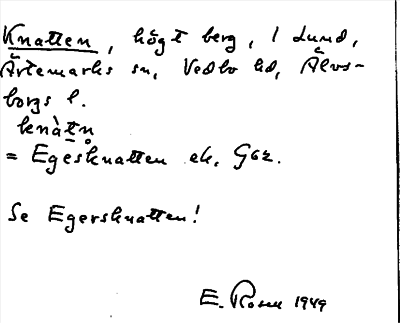 Knatten, högt berg, i Lund,
Ärtemarks sn, Vedbo hd, Älvs-
borgs l.
knàtn̥
= Egesknatten ek, G62.
Se Egersknatten!
E. Rosen 1949